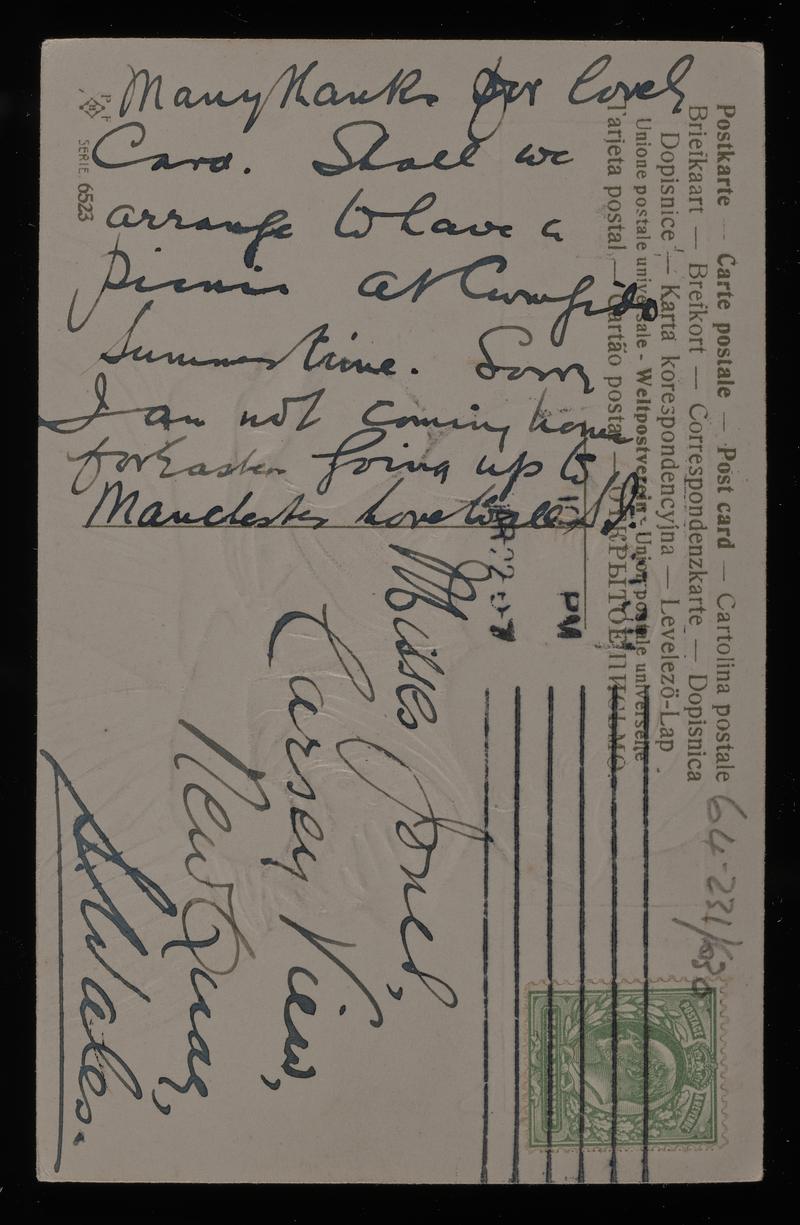 Many thanks for lovely
Card. Shall we
arrange to have a
Picnic at
Summer time. Sorry
I am not coming home
for Easter going up to
Manchester love to all
Misses Jones,
Carsey View,
New Quay,
S. Wales.
Postkarte — Carte postale — Post card — Cartolina postale
Briefkaart — Brefkort — Correspondenzkarte — Dopisnica
Dopisnice — Karta korespondencyjna — Levelezö-Lap
Unione postale universale - Weltpostverein - Union postale universelle
Tarjeta postal — Cartão postal — ОТКРЫТОЕ ПИСЬМО.
PM
64-231/630
P F B
SERIE 6523
POSTAGE REVENUE